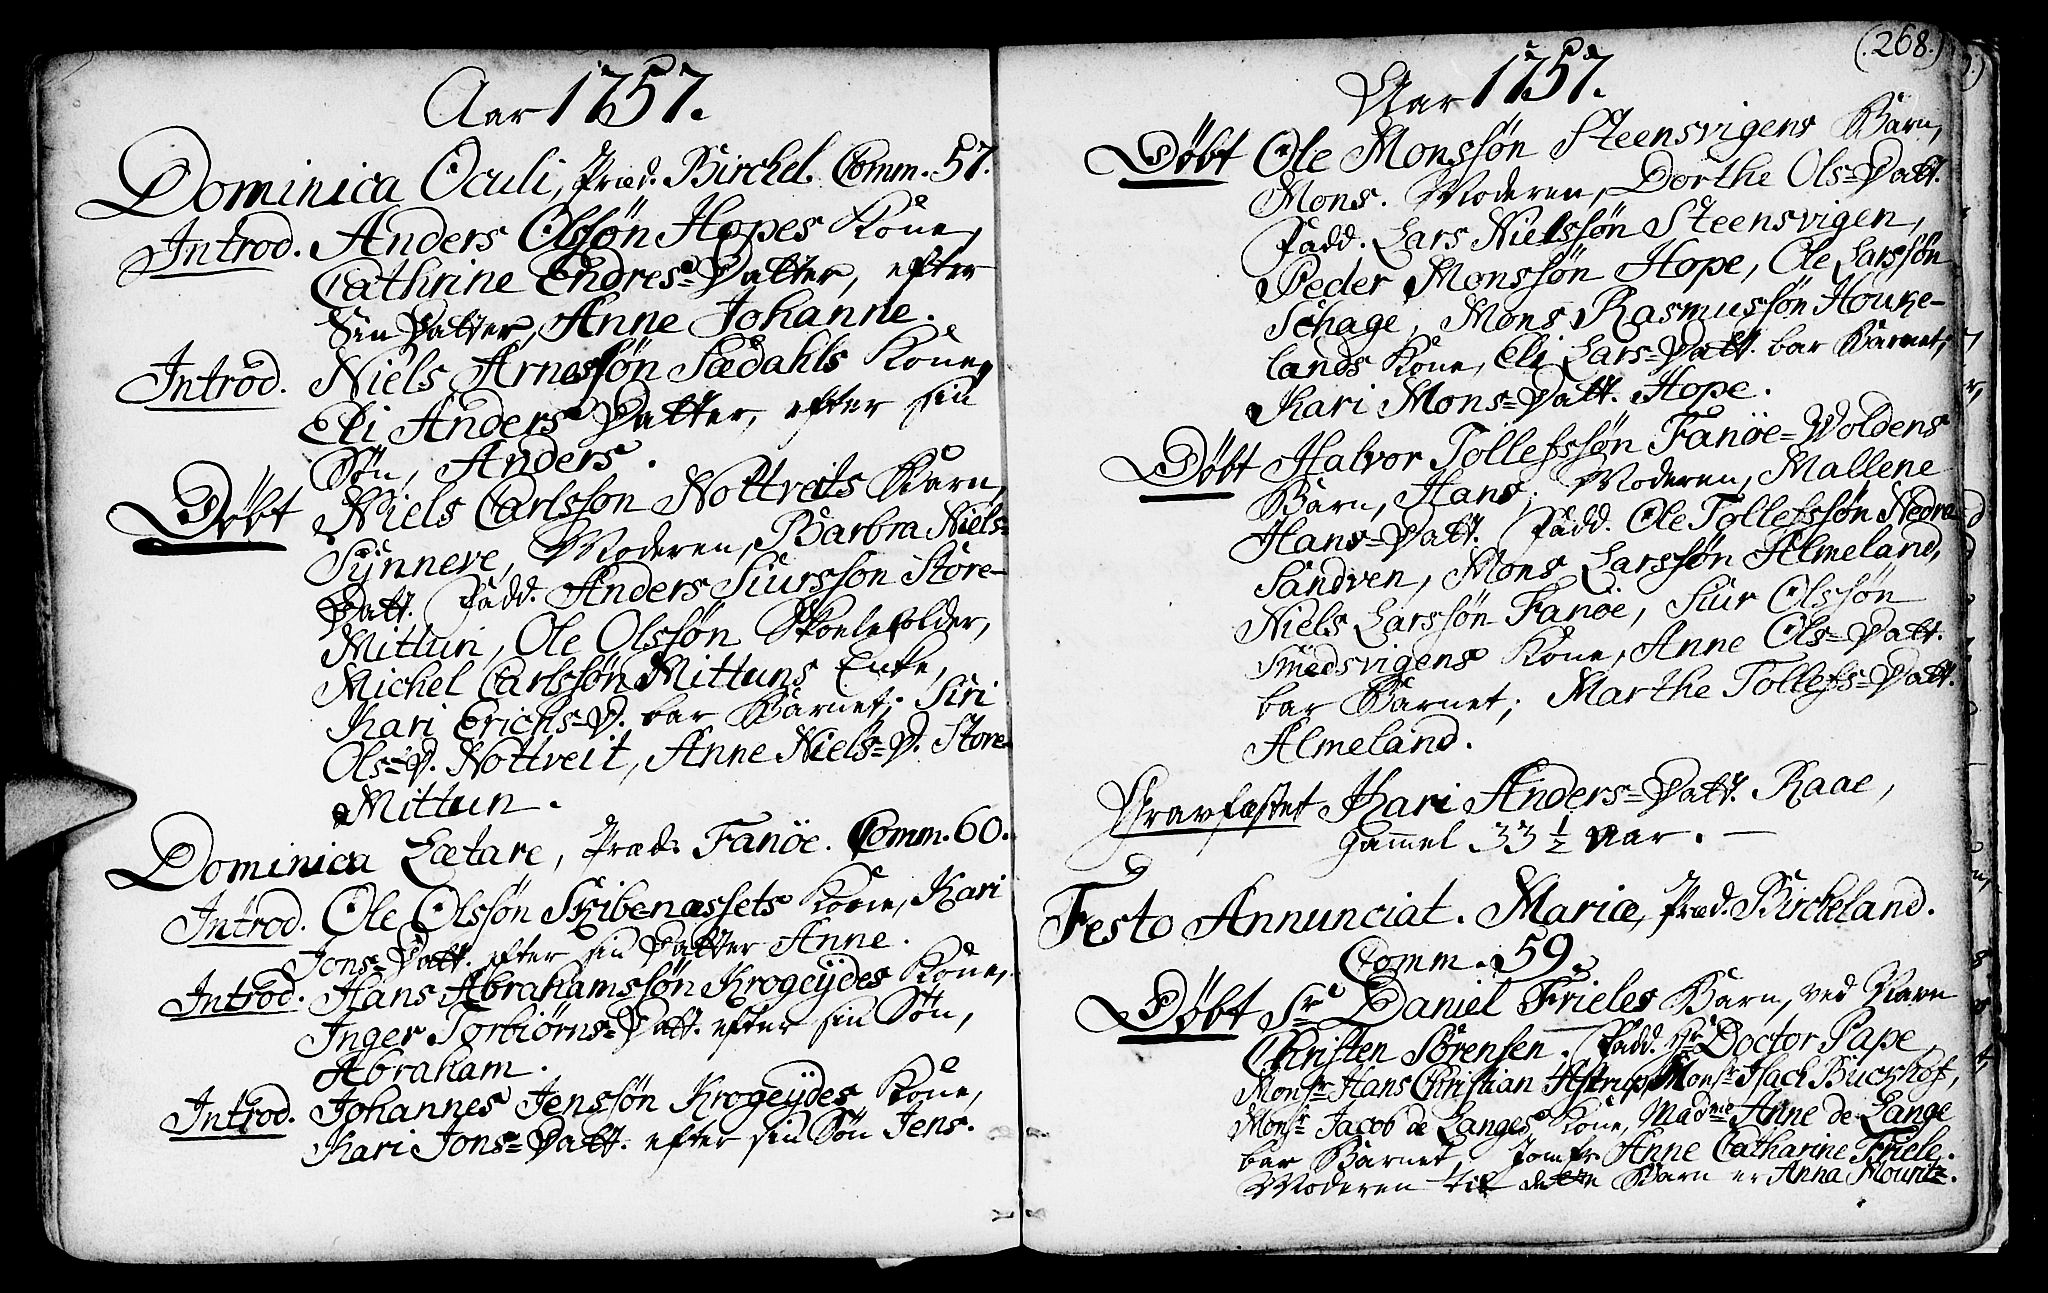 Aar 1757.
Dominica Oculi, Præd. Birchel. Comm. 57.
Introd. Anders Olssøn Hopes Kone,
Cathrine Endres-Datter, efter
sin Datter, Anne Johanne.
Introd. Niels Arnessøn Sædahls Kone,
Eli Anders-Datter, efter sin
Søn, Anders.
Døbt Niels Carlsson Nottveits Barn,
Synneve, Moderen, Barbra Niels-
Datt. Fadd. Anders Siursson Store-
Mittun, Ole Olssøn Skoeleholder,
Michel Carlssøn Mittuns Enke,
Kari Erichs-D. bar Barnet; Siri
Ols-D. Nottveit, Anne Niels-D. Store-
Mittun.
Dominica Lætare, Præd. Fanöe. Comm. 60.
Introd. Ole Olssøn Skibenæssets Kone, Kari
Jons-Datt. efter sin Datter Anne.
Introd. Hans Abrahamssøn Krogeydes Kone,
Inger Torbiørns-Datt. efter sin Søn,
Abraham.
Introd. Johannes Jenssøn Krogeydes Kone,
Kari Jons-Datt. efter sin Søn Jens.
(268.)
Aar 1757.
Døbt Ole Monssøn Steensvigens Barn,
Mons. Moderen, Dorthe Ols-Datt.
Fadd. Lars Nielssøn Steensvigen,
Peder Monssøn Hope, Ole Larssøn
Schage, Mons Rasmussøn Houke-
lands Kone, Eli Lars-Datt. bar Barnet;
Kari Mons-Datt. Hope.
Døbt Halvor Tollefssøn Fanöe-Woldens
Barn, Hans; Moderen, Mallene
Hans-Datt. Fadd. Ole Tollefssøn Nedra-
Sandven, Mons Larssøn Almeland,
Niels Larssøn Fanöe, Siur Olssøn
Smedsvigens Kone, Anne Ols-Datt.
bar Barnet; Marthe Tollefs-Datt.
Almeland.
Gravfæstet Kari Anders-Datt. Raae,
gammel 33 1/2 Aar.
Festo Annunciat. Mariæ, Præd. Birckeland.
Comm. 59.
Døbt Sr Daniel Frieles Barn, ved Navn
Christen Sørensen. Fadd. Hr Doctor Pape,
Monsr Hans Christian Astrup, Monsr Isach Buchhof,
Monsr Jacob de Langes Kone, Madme Anne de Lange
bar Barnet, Jomfr Anne Catharine Friele.
Moderen til dette Barn er Anna Mouritz.